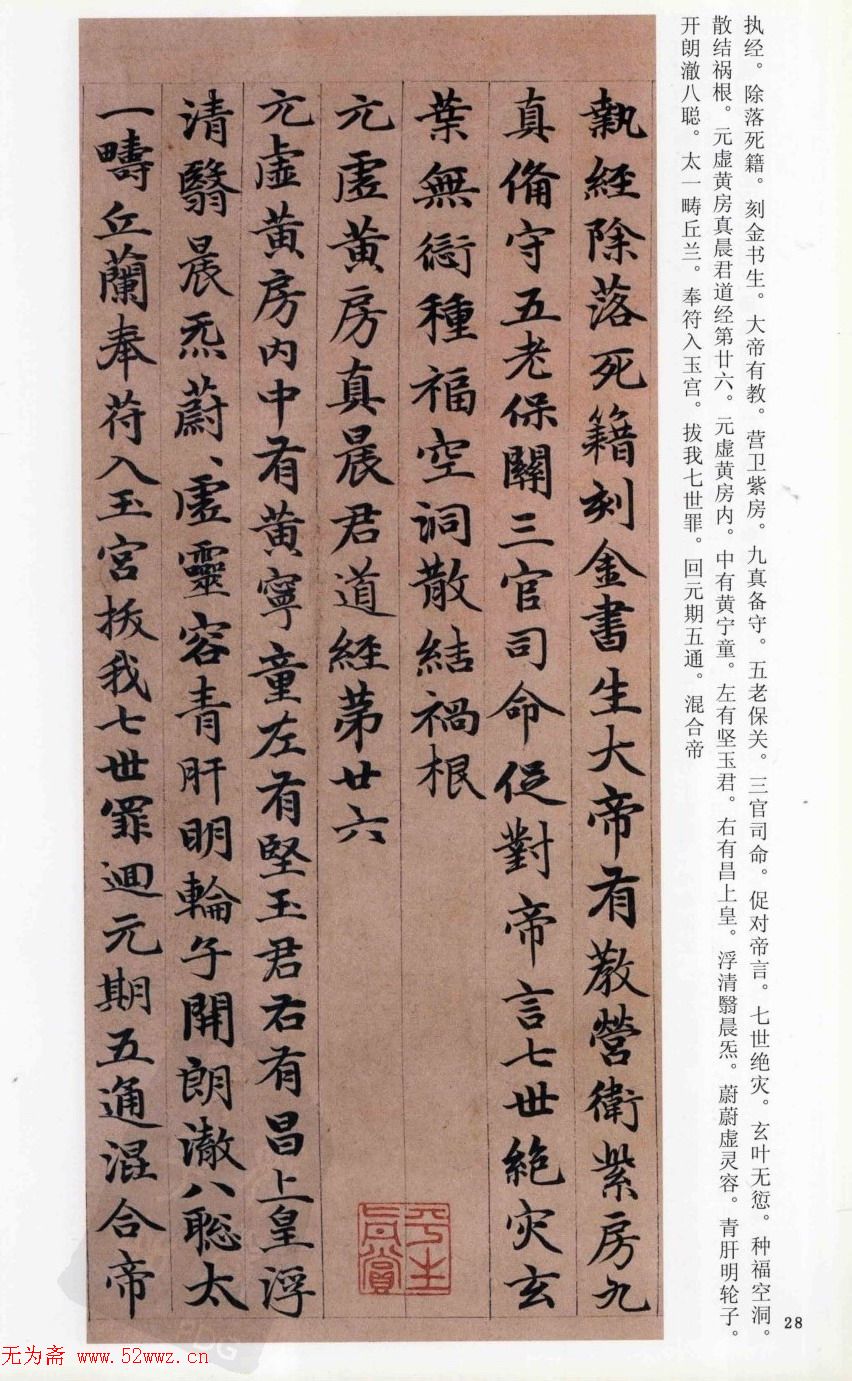 执经。除落死籍。刻金书生。大帝有教。营卫紫房。九真备守。五老保关。三官司命。促对帝言。七世绝灾。玄叶无愆。种福空洞。
散结祸根。元虚黄房真晨君道经第廿六。元虚黄房内。中有黄宁童。左有坚玉君。右有昌上皇。浮清翳晨炁。蔚蔚虚灵容。青肝明轮子。
开朗澈八聪。太一畴丘兰。奉符入玉宫。拔我七世罪。回元期五通。混合帝
執經除落死籍刻金書生大帝有教營衛紫房九
真俻守五老保關三官司命促對帝言七世絶灾玄
葉無愆種福空洞散結禍根
元虛黃房真晨君道經苐廿六
元虛黃房内中有黃寧童左有堅玉君右有昌上皇浮
清翳晨炁蔚〻虛靈容青肝明輪子開朗澈八聡太
一疇丘蘭奉苻入玉宮拔我七世罪迴元期五通混合帝
平生
真賞
28
无为斋 www.52wwz.cn